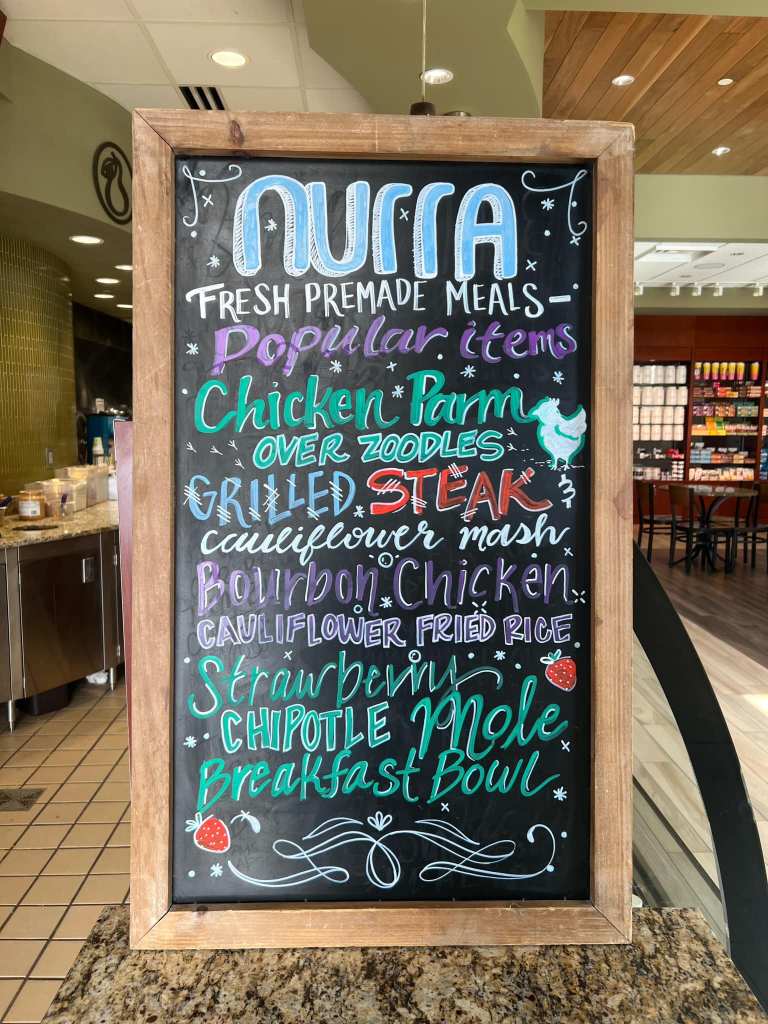 nurra
FRESH PREMADE MEALS-
Popular items
Chicken Parm
OVER ZOODLES
GRILLED STEAK &
cauliflower mash
Bourbon Chicken
CAULIFLOWER FRIED RICE
Strawberry
CHIPOTLE Mole
Breakfast Bowl